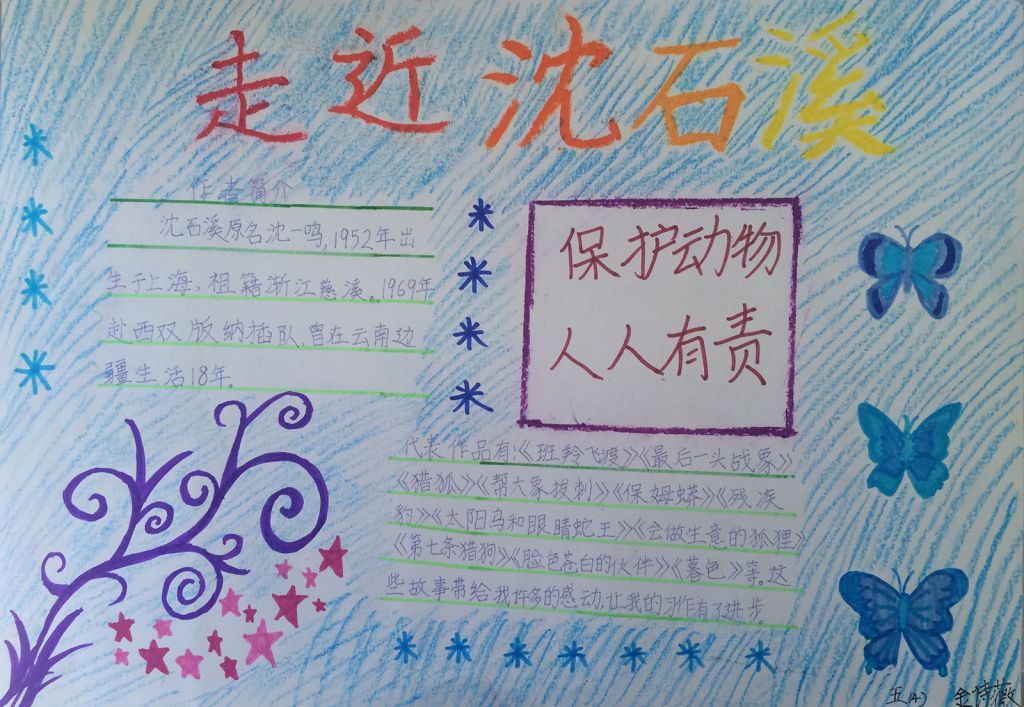 走近沈石溪
作者简介
沈石溪原名沈一鸣,1952年出
生于上海,祖籍浙江慈溪。1969年
赴西双版纳插队,曾在云南边
疆生活18年。
保护动物
人人有责
代表作品有:《班羚飞渡》《最后一头战象》
《猎狐》《帮大象拔刺》《保姆蟒》《残疾
豹》《太阳鸟和眼睛蛇王》《会做生意的狐狸》
《第七条猎狗》《脸色苍白的伙伴》《暮色》等。这
些故事带给我许多的感动,让我的习作有了进步。
五(4) 金诗薇